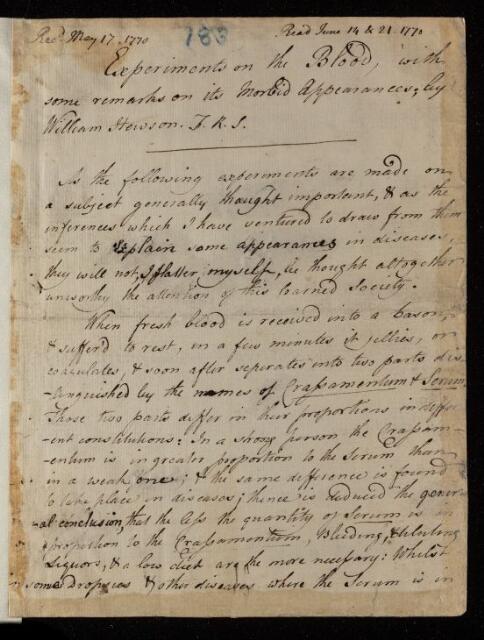 Rec.d May 17. 1770
183
Read June 14 & 21. 1770
Experiments on the Blood, with
some remarks on its Morbid Appearances; by
William Hewson. F.R.S.
As the following experiments are made on
a subject generally thought important, & as the
inferences which I have ventured to draw from them
seem to explain some appearances in diseases,
they will not, I flatter myself, be thought altogether
unworthy the attention of this learned Society.
When fresh blood is received into a bason,
& suffer'd to rest, in a few minutes it jellies, or
coagulates, & soon after seperates into two parts dis-
-tinguished by the names of Crassamentum & Serum.
Those two parts differ in their proportions in differ-
-ent constitutions: In a strong person the Crassam-
-entum is in greater proportion to the Serum than
in a weak one; & the same difference is found
to take place in diseases; thence is deduced the gener-
-al conclusion, that the less the quantity of Serum is in
proportion to the Crassamentum, Bleeding, diluting
Liquors, & a low diet are the more necessary: Whilst
in some Dropsies & other diseases where the Serum is in